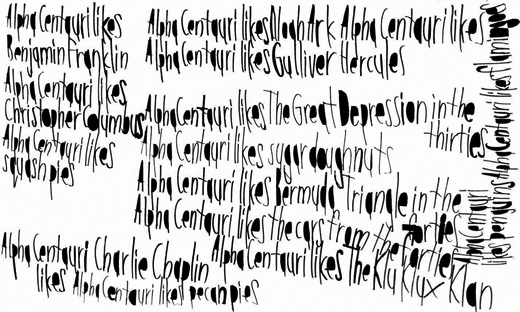 Alpha Centauri likes
Benjamin Franklin
Alpha Centauri likes
Christopher Columbus
Alpha Centauri likes
squash pies
Alpha Centauri likes Noah Ark Alpha Centauri likes
Alpha Centauri likes Gulliver Hercules
Alpha Centauri likes The Great Depression in the
thirties
Alpha Centauri likes sugar doughnuts
Alpha Centauri likes Bermuda Triangle in the
Alpha Centauri likes the cars from the forties
Alpha Centauri Charlie Chaplin Alpha Centauri likes The Klu Klux Klan
likes Alpha Centauri likes pecan pies
Alpha Centauri likes flamingo
Alpha Centauri
likes penguins